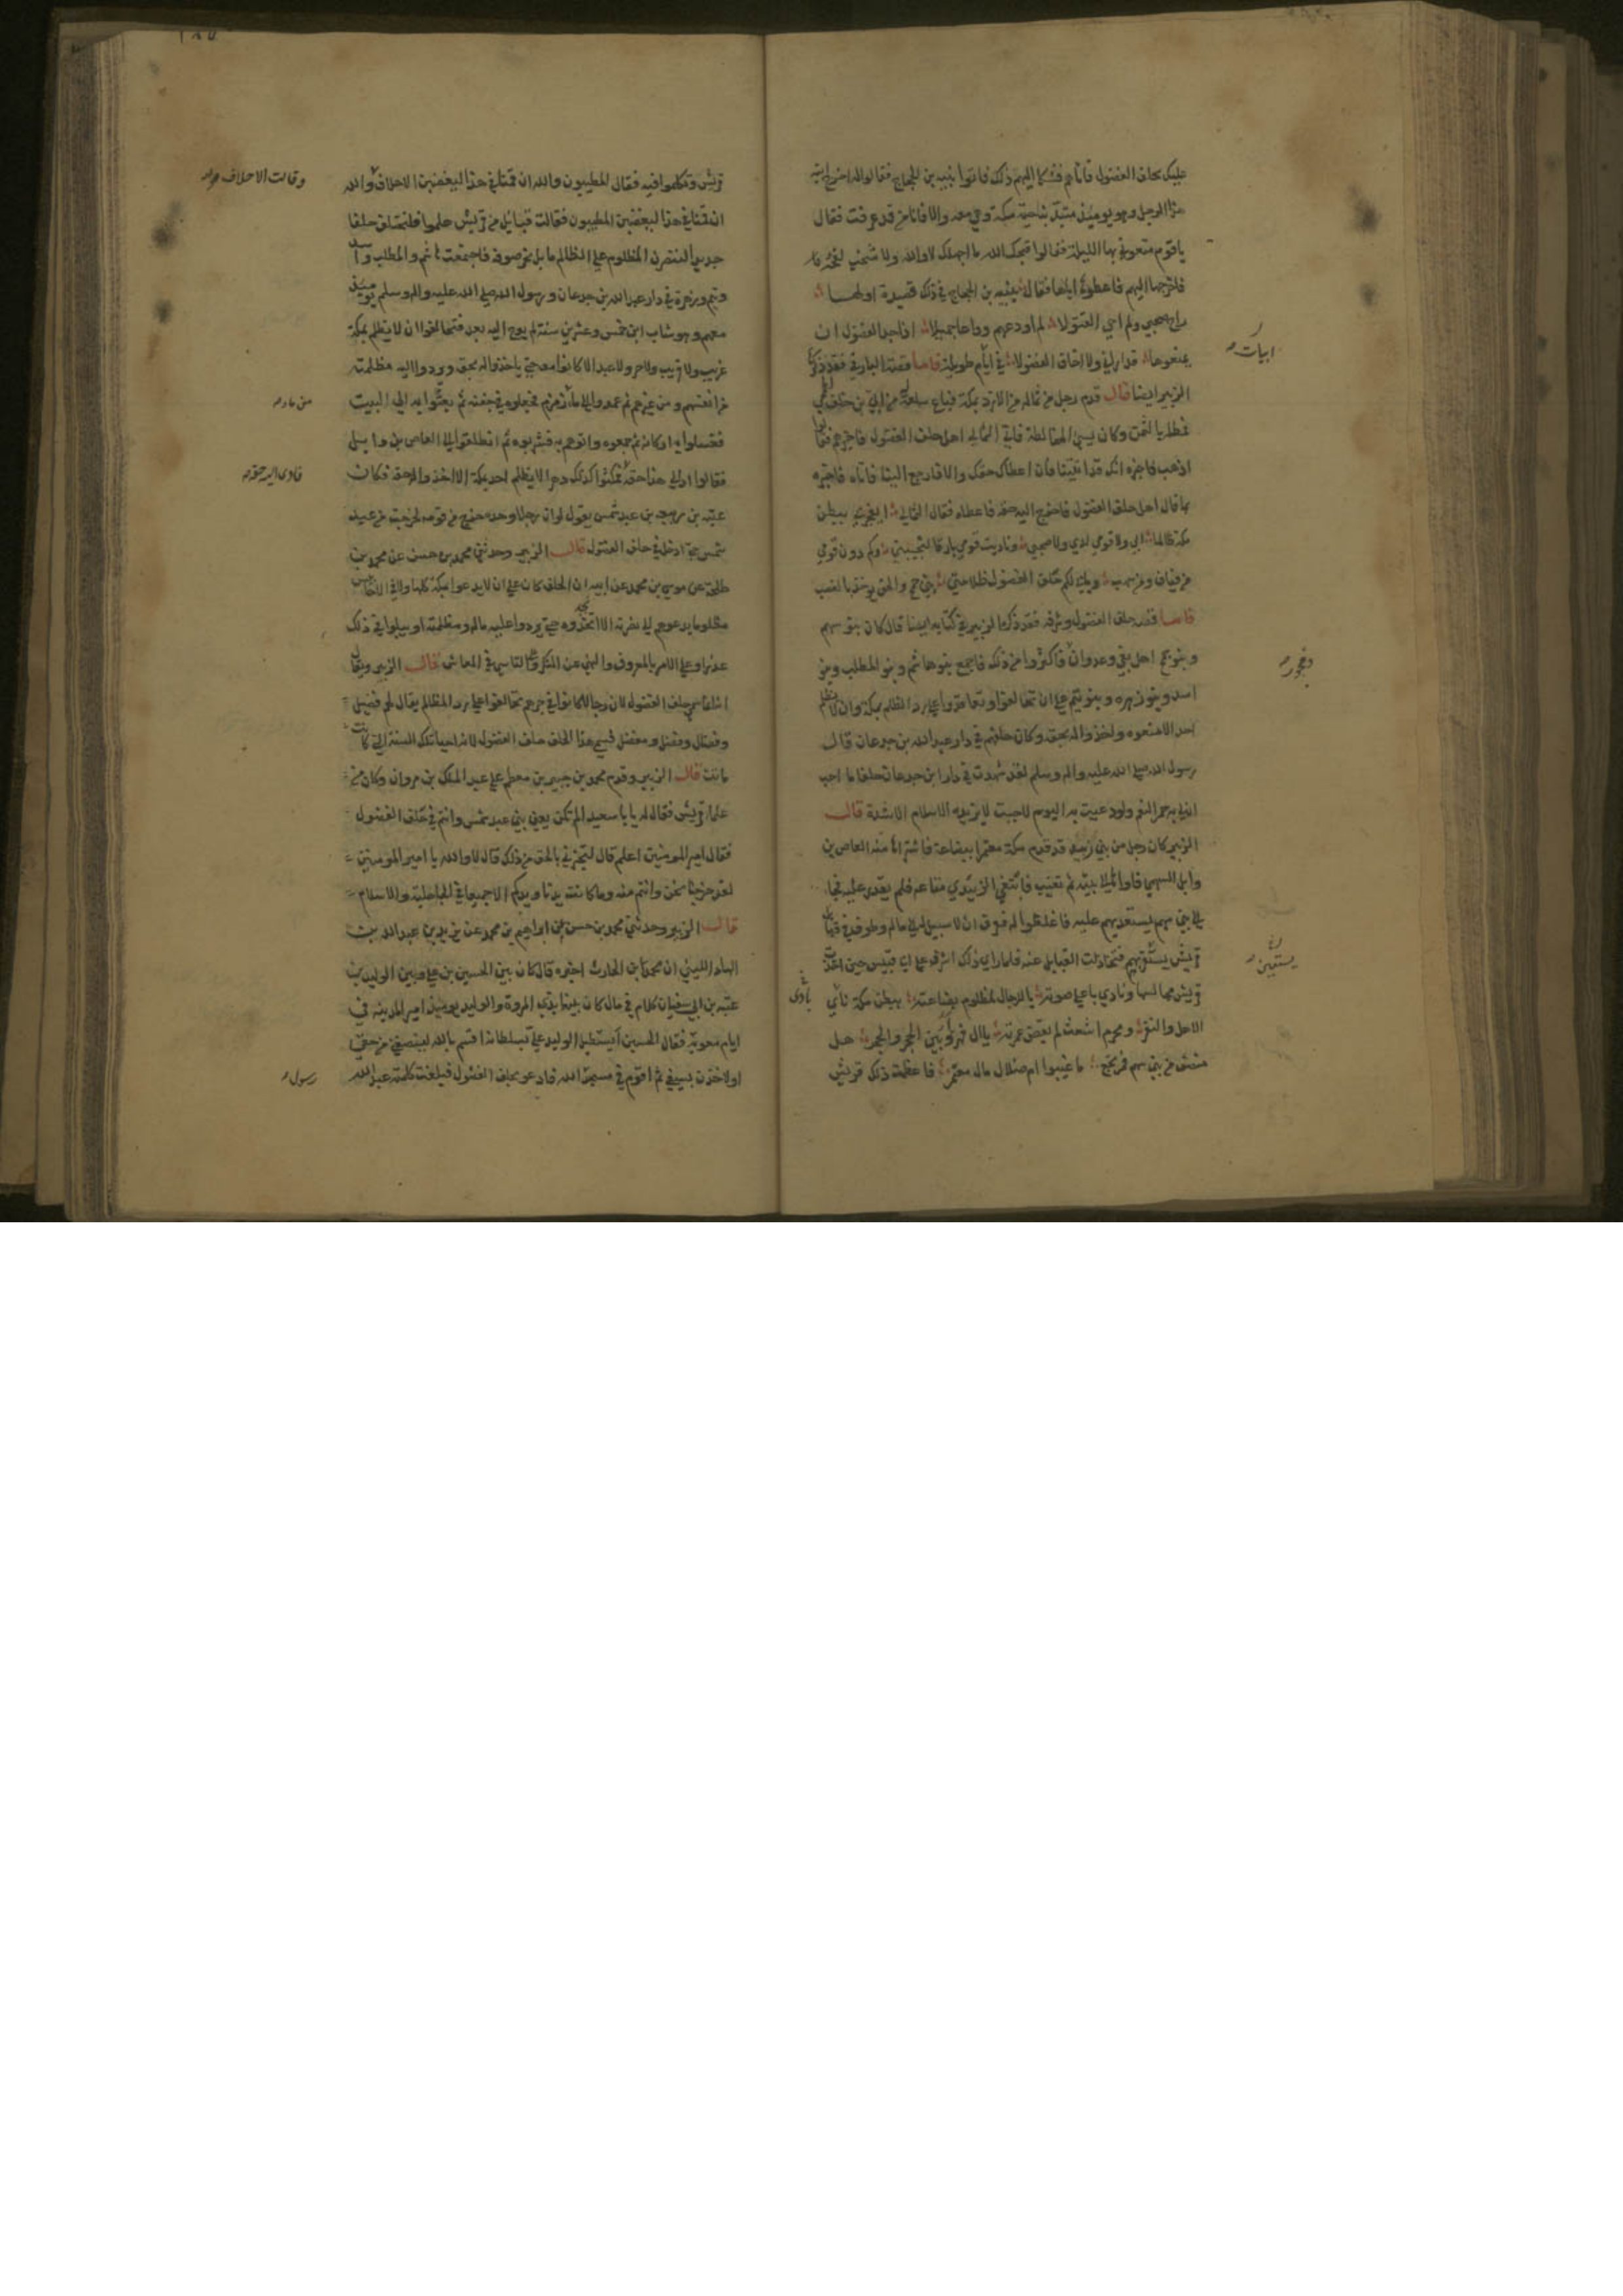 عليك بحلف الفضول فاتاهم فشكا اليهم ذلك فاتوا نبيه بن الحجاج فقالوا له اخرج ابنة
هذا الرجل وهو يومئذ متبد بناحية مكة وهي معه والا فانا من قد عرفت فقال
يا قوم متعوني بها الليلة فقالوا قبحك الله ما اجهلك لا والله ولا شخب لقحة
فاخرجها اليهم فاعطوه اياها فقال نبيه بن الحجاج في ذلك قصيدة اولها
راح صحبي ولم احي القتولا لم اودعهم وداعا جميلا اذ اجد الفضول ان
يمنعوها قد اراني ولا اخاف الفضولا في ابيات طويلة فاما قصة البارقي فقد ذكر
ابيات
الزبير ايضا قال قدم رجل من ثمالة من الازد مكة فباع سلعة من ابي بن خلف
فمطله بالثمن وكان يسئ المخالطة فاتى الثمالي اهل حلف الفضول فاخبرهم فقالوا
اذهب فاخبره انك قد اتيتنا فان اعطاك حقك والا فارجع الينا فاتاه فاخبره
بما قال اهل حلف الفضول فاخرج اليه حقه فاعطاه فقال الثمالي ببطن
مكة ظالما ابي ولا قومي لدي ولا صحبي وناديت قومي بارقا لتجيبني وكم دون قومي
من فياف ومن سهب ويابى لكم حلف الفضول ظلامتي بني جمح والحق يوخذ بالغصب
فاما قصة حلف الفضول وشرفه فقد ذكرها الزبير في كتابه ايضا قال كان بنو سهم
وبنو جمح اهل بغي وعدوان فاكثروا من ذلك فاجمع بنو هاشم وبنو المطلب وبنو
وفجور
اسد وبنو زهرة وبنو تيم على ان تحالفوا وتعاقدوا على رد الظلم بمكة وان لا يظلم
احد الا منعوه واخذوا له بحقه وكان حلفهم في دار عبد الله بن جدعان قال
رسول الله صلى الله عليه واله وسلم لقد شهدت في دار ابن جدعان حلفا ما احب
ان لي به حمر النعم ولو دعيت به اليوم لاجبت لا يزيده الاسلام الا شدة قال
الزبير كان رجل من بني زبيد قد قدم مكة معتمرا ببضاعة فاشتراها منه العاص بن
وايل السهمي فاواها الى بيته ثم تغيب فابتغى الزبيدي متاعه فلم يقدر عليه فجا
الى بني سهم يستعديهم عليه فاغلظوا له فعرف ان لا سبيل الى ماله وطوف في قبايل
قريش يستنفر بهم فتخاذلت القبايل عنه فلما راى ذلك اشرف على ابي قبيس حين اخذت
يستعين
قريش مجالسها ونادى باعلى صوته يا للرجال لمظلوم بضاعته ببطن مكة نائي
الاهل والنفر ومحرم اشعث لم يقض عمرته يا ال فهر وبين الحجر والحجر هل
منصف من بني سهم فمرتجع ما غيبوا ام ضلال مال معتمر فاعظمت ذلك قريش
قريش وتكلموا فيه فقال المطيبون والله ان قمنا في هذا ليغضبن الاحلاف والله
وقالت الاحلاف
ان قمنا في هذا ليغضبن المطيبون فقالت قبائل من قريش هلموا فلنحتلف حلفا
جديدا لننصرن المظلوم على الظالم ما بل بحر صوفة فاجتمعت هاشم والمطلب واسد
وتيم وزهرة في دار عبد الله بن جدعان ورسول الله صلى الله عليه واله وسلم يومئذ
معهم وهو شاب ابن خمس وعشرين سنة لم يوح اليه بعد فتحالفوا ان لا يظلم بمكة
غريب ولا قريب ولا حر ولا عبد الا كانوا معه حتى ياخذوا له بحقه ويردوا اليه مظلمته
من انفسهم ومن غيرهم ثم عمدوا الى ماء زمزم فجعلوه في جفنة ثم بعثوا به الى البيت
من ماء
فغسلوا به اركانه ثم جمعوه واتوهم به فشربوه ثم انطلقوا الى العاص بن وايل
فقالوا اد الى هذا حقه فمكثوا كذلك دهرا لا يظلم احد بمكة الا اخذوا له حقه فكان
فادى اليه حقه
عتبة بن ربيعة بن عبد شمس يقول لو ان رجلا وحده خرج من قومه لخرجت من عبد
شمس حتى ادخل في حلف الفضول قال الزبير وحدثني محمد بن حسن عن محمد بن
طلحة عن موسى بن محمد عن ابيه ان الحلف كان على ان لا يدعوا بمكة كلها ولا في الاحابيش
مظلوما يدعوهم الى نصرته الا انجدوه حتى يردوا عليه ماله ومظلمته او يبلوا في ذلك
عذرا وعلى الامر بالمعروف والنهي عن المنكر وعلى التاسي في المعاش قال الزبير ويقال
انما سمي حلف الفضول لان رجالا كانوا في جرهم تحالفوا على رد المظالم يقال لهم فضيل
وفضال وفضل ومفضل فسمي هذا الحلف حلف الفضول لانه احيا تلك السنة التي كانت
ماتت قال الزبير وقدم محمد بن جبير بن مطعم على عبد الملك بن مروان وكان من
علماء قريش فقال له يا با سعيد الم نكن يعني بني عبد شمس وانتم في حلف الفضول
فقال امير المومنين اعلم قال لتخبرني بالحق من ذلك قال لا والله يا امير المومنين
لقد خرجنا نحن وانتم منه وما كانت يدنا ويدكم الا جميعا في الجاهلية والاسلام
قال الزبير وحدثني محمد بن حسن عن ابراهيم بن محمد عن يزيد بن عبد الله بن
الهاد الليثي ان محمد بن الحارث اخبره قال كان بين الحسين بن علي وبين الوليد بن
عتبة بن ابي سفيان كلام في مال كان بينهما بذي المروة والوليد يومئذ امير المدينة في
ايام معوية فقال الحسين ايستطيل الوليد علي بسلطانه اقسم بالله لينصفني من حقي
او لاخذن بسيفي ثم اقوم في مسجد الله فادعو بحلف الفضول فبلغت كلمته عبد الله
رسول